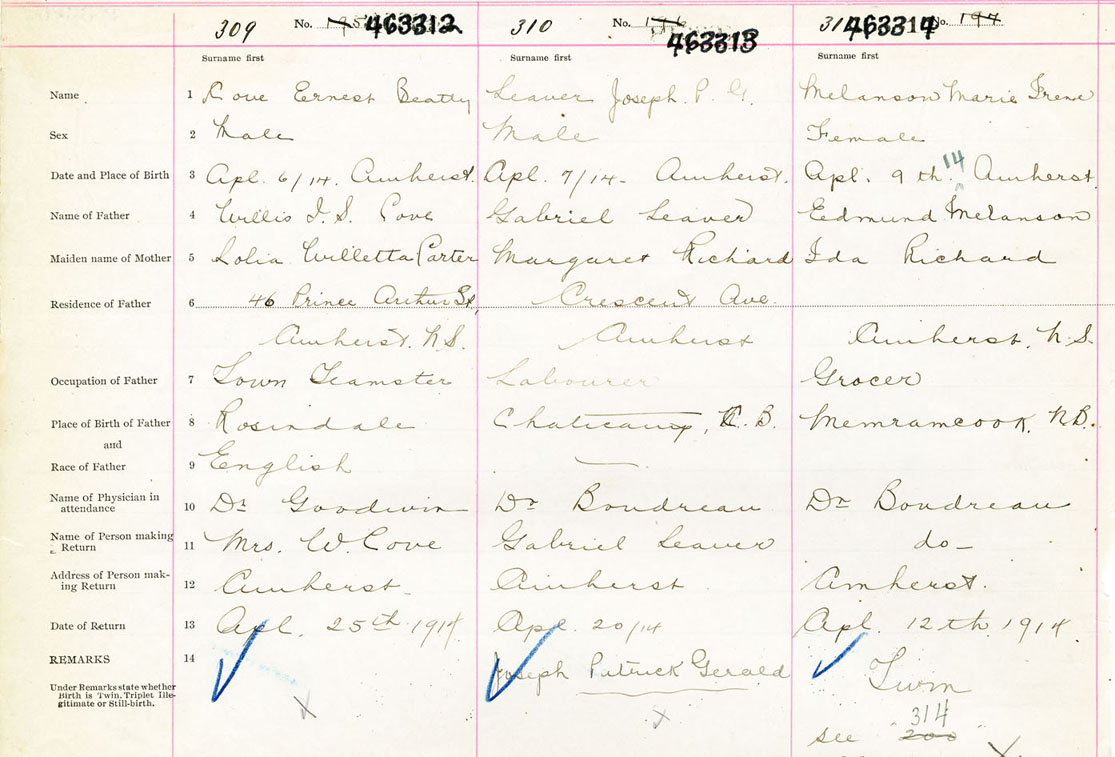 309 No. 463312 310 No. 463313 463314 No. 194
Surname first Surname first Surname first
Name 1 Cove Ernest Beatty Leaver Joseph P. G. Melanson Marie Irene
Sex 2 Male Male Female
Date and Place of Birth 3 Apl. 6/14. Amherst. Apl. 7/14 - Amherst. Apl. 9th 14 Amherst.
Name of Father 4 Willis I. S. Cove Gabriel Leaver Eedmund Melanson
Maiden name of Mother 5 Lolia Willetta Carter Margaret Richard Ida Richard
Residence of Father 6 46 Prince Arthur St, Crescent Ave.
Amherst. N.S. Amherst Amherst, N.S.
Occupation of Father 7 Town Teamster Labourer Grocer
Place of Birth of Father 8 Rosindale N. B. Memramcook, N.B.
and
Race of Father 9 English —
Name of Physician in
attendance 10 Dr Goodwin Dr Boudreau Dr Boudreau
Name of Person making
Return 11 Mrs. W. Cove Gabriel Leaver do -
Address of Person mak-
ing Return 12 Amherst Amherst Amherst.
Date of Return 13 Apl. 25th 1914 Apl. 20/14 Apl. 12th. 1914.
REMARKS 14 Joseph Patrick Gerald Twin
Under Remarks state whether
Birth is Twin, Triplet Ille-
gitimate or Still-birth.
314
see 200